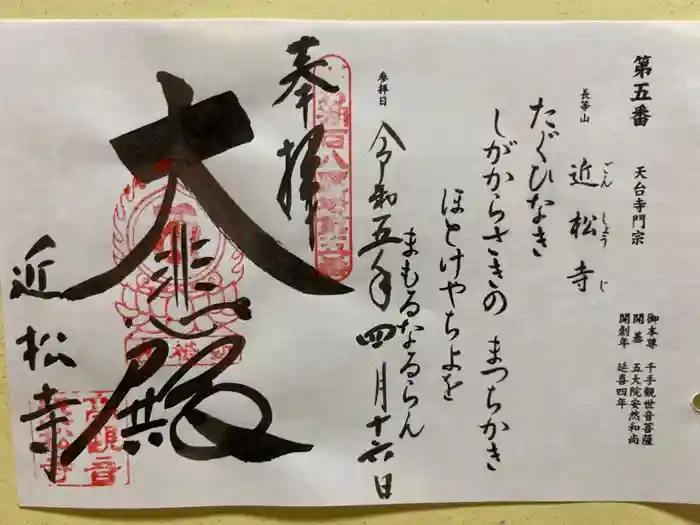 第五番 天台寺門宗
御本尊 千手観世音菩薩
開基 五大院安然和尚
開創年 延喜四年
長等山 近松寺
ごんしょうじ
たぐひなき
しがからさきの まつちかき
ほとけやちよを
まもるなるらん
参拝日 令和五年四月十六日
奉拝
大悲殿
近松寺
高観音
近松寺